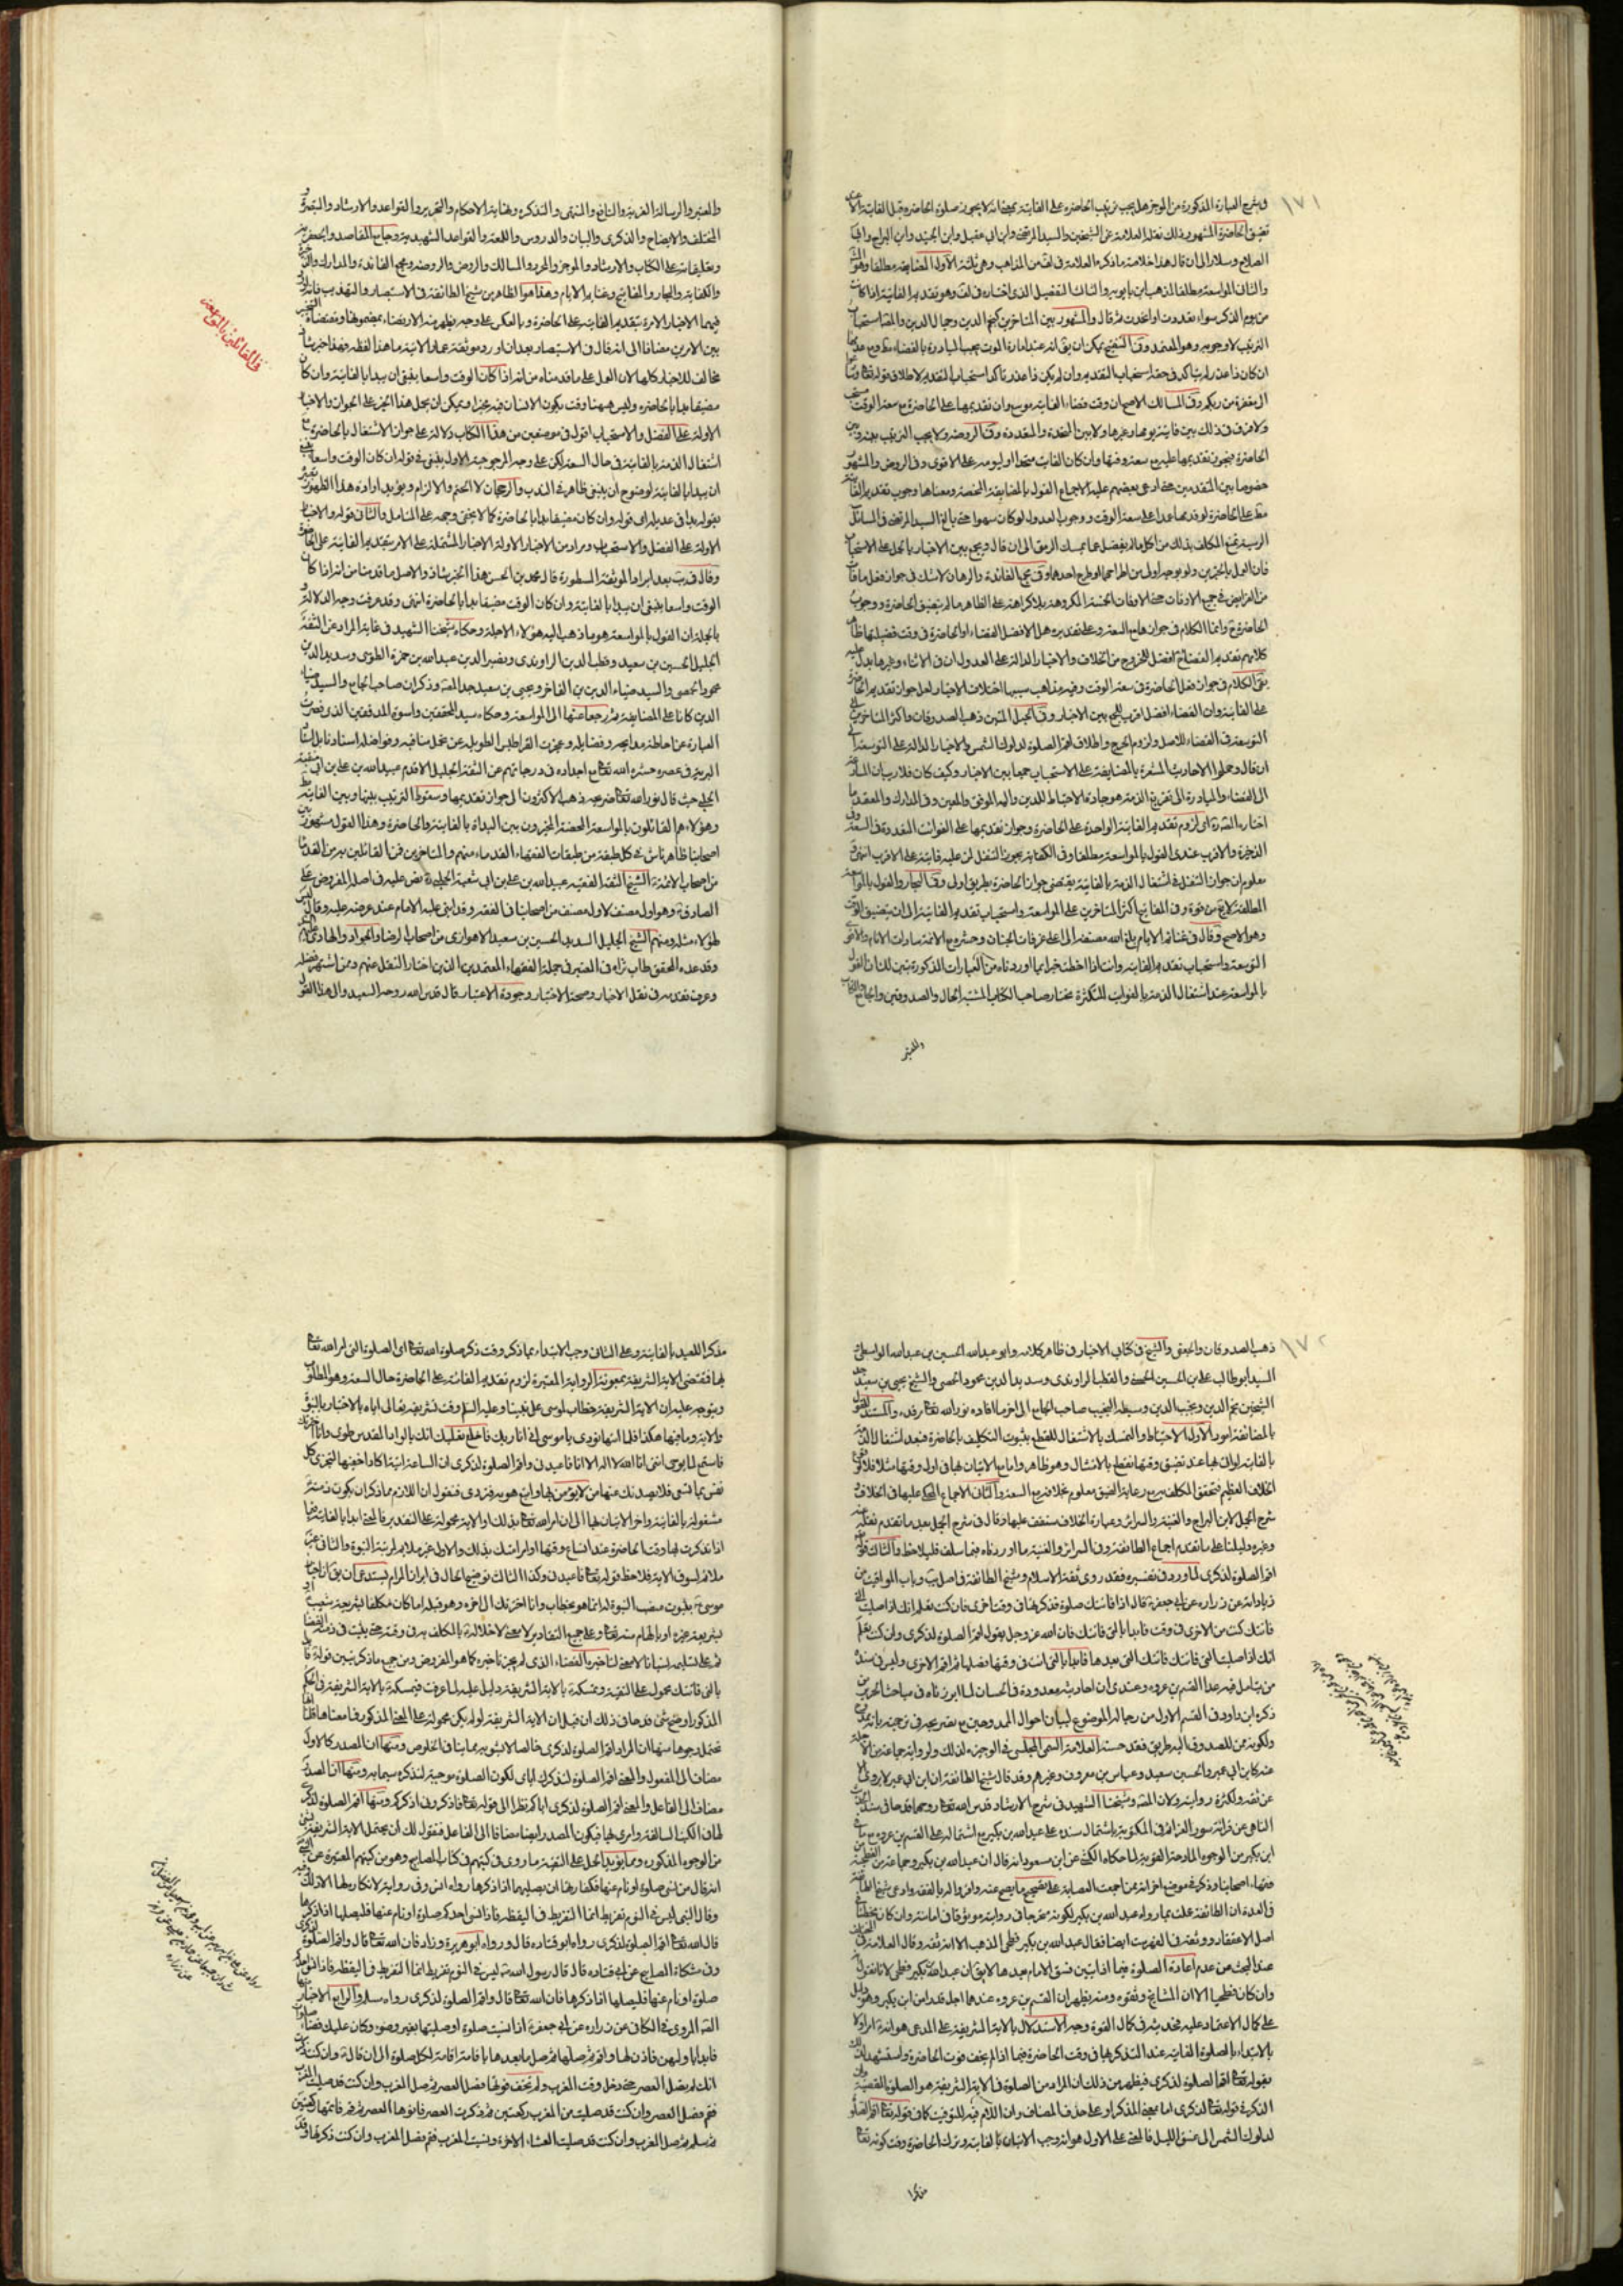 ١٧١
وفي شرح العبارة المذكورة من الموجز هل يجب ترتيب الحاضرة على الفائتة بمعنى انه لا يجوز صلوة الحاضرة قبل الفائتة الا
تضيق الحاضرة المشهور ذلك نقله العلامة عن الشيخين والسيد المرتضى وابن ابي عقيل وابن الجنيد وابن البراج وابي
الصلاح وسلار الى ان قال هذا خلاصة ما ذكره العلامة في لف من المذاهب وهي ثلثة الاول المضايقة مطلقا وهو
والثاني المواسعة مطلقا لمذهب ابن بابويه والثالث التفصيل الذي اختاره في لف وهو تقديم الفائتة اذا كانت
من يوم الذكر سواء تعددت او اتحدت ثم قال والمشهور بين المتاخرين كنجم الدين وجمال الدين والمصنف استحباب
الترتيب لا وجوبه وهو المعتمد وفي التنقيح يمكن ان يق انه عند امارة الموت يجب المبادرة بالقضاء
ان كان ذا عذر لم يتاكد في حقه استحباب التقديم وان لم يكن ذا عذر تاكد استحباب التقديم لاطلاق قوله تعالى
الى مغفرة من ربكم وفي المسالك الاصح ان وقت قضاء الفائتة موسع وان تقديمها على الحاضرة مع سعة الوقت مستحب
ولا فرق في ذلك بين فائتة يومها وغيرها ولا بين المتحدة والمتعددة وفي الروضة ولا يجب الترتيب بينه وبين
الحاضرة فيجوز تقديمها عليه مع سعة وقتها وان كان الفائت متحدا او ليومه على الاقوى وفي الروض والمشهور
خصوصا بين المتقدمين حتى ادعى بعضهم عليه الاجماع القول بالمضايقة المحضة ومعناها وجوب تقديم الفائتة
على الحاضرة لو قدمها عمدا على سعة الوقت ووجوب العدول لو كان سهوا حتى بالغ السيد المرتضى في المسائل
الرسية فمنع المكلف بذلك من اكل ما يفضل عما يمسك الرمق الى ان قال ويجمع بين الاخبار بالحمل على الاستحباب
فان العمل بالخبرين ولو بوجه اولى من اطراحهما او طرح احدهما وفي مجمع الفائدة والبرهان لا شك في جواز فعل ما فات
من الفرائض في جميع الاوقات حتى الاوقات الخمسة المكروهة بلا كراهة على الظاهر ما لم يتضيق الحاضرة ووجوب
الحاضرة ح وانما الكلام في جوازها مع السعة وعلى تقديره هل الافضل القضاء او الحاضرة في وقت فضيلتها
كلامهم تقديم القضاء افضل للخروج من الخلاف والاخبار الدالة على العدول ان في الاثناء وغيرها يدل عليه
بقي الكلام في جواز فعل الحاضرة في سعة الوقت وفيه مذاهب سببها اختلاف الاخبار لعل جواز تقديم الحاضرة
على الفائتة وان القضاء افضل اقرب للجمع بين الاخبار وفي الحبل المتين ذهب الصدوقان واكثر المتاخرين الى
التوسعة في القضاء للاصل ولزوم الحرج واطلاق اقم الصلوة لدلوك الشمس والاخبار الدالة على التوسعة الى
ان قال وحملوا الاحاديث المشعرة بالمضايقة على الاستحباب جمعا بين الاخبار وكيف كان فلا ريب ان المسارعة
الى القضاء والمبادرة الى تفريغ الذمة هو جادة الاحتياط للدين والله الموفق والمعين وفي المدارك والمعتمد ما
اختاره المصنف اي لزوم تقديم الفائتة الواحدة على الحاضرة وجواز تقديمها على الفوائت المتعددة في السعة وفي
الذخيرة والاقرب عندي القول بالمواسعة مطلقا وفي الكفاية يجوز التنفل لمن عليه فائتة على الاقرب انتهى و
معلوم ان جواز التنفل في اشتغال الذمة بالفائتة يقتضي جواز الحاضرة بطريق اولى وفي البحار والقول بالمواسعة
المطلقة لا يخ من قوة وفي المفاتيح اكثر المتاخرين على المواسعة واستحباب تقديم الفائتة الى ان يتضيق الوقت
وهو الاصح وقال في غنائم الايام بلغ الله مصنفه الى اعلى غرفات الجنان وحشره مع الائمة سادات الانام والاقوى
التوسعة واستحباب تقديم الفائتة وانت اذا احطت خبرا بما اوردناه من العبارات المذكورة تبين لك ان القول
بالمواسعة عند اشتغال الذمة بالفوائت المتكثرة مختار صاحب الكتاب المشتبه الحال والصدوقين والجامع
والمعتبر
والمعتبر والرسالة العزية والنافع والمنتهى والتذكرة ونهاية الاحكام والتحرير والقواعد والارشاد والتبصرة و
المختلف والايضاح والذكرى والبيان والدروس واللمعة والقواعد الشهيدية وجامع المقاصد والجعفرية
وتعليقاته على الكتاب والارشاد والموجز والمحرر والمسالك والروض والروضة ومجمع الفائدة والمدارك
والكفاية والبحار والمفاتيح وغنائم الايام وهذا هو الظاهر من شيخ الطائفة في الاستبصار والتهذيب فانه
فيهما الاخبار الامرة بتقديم الفائتة على الحاضرة وبالعكس على وجه يظهر منه الارتضاء بمضمونها ومقتضاه التخيير
بين الامرين مضافا الى انه قال في الاستبصار بعد ان اورد موثقة عمار الاتية ما هذا لفظه فهذا خبر شاذ
مخالف للاخبار كلها لان العمل على ما قدمناه من انه اذا كان الوقت واسعا ينبغي ان يبدا بالفائتة وان كان
مضيقا بدا بالحاضرة وليس ههنا وقت يكون الانسان فيه مخيرا ويمكن ان يحمل هذا الخبر على الجواز والاخبار
الاولة على الفضل والاستحباب اقول في موضعين من هذا الكتاب دلالة على جواز الاشتغال بالحاضرة مع
اشتغال الذمة بالفائتة في حال السعة لكن على وجه المرجوحية الاول ينبغي في قوله ان كان الوقت واسعا ينبغي
ان يبدا بالفائتة لوضوح ان ينبغي ظاهر في الندب والرجحان لا الحتم والالزام ويؤيد ارادة هذا الظهور
بقوله بدا في عديله اي قوله وان كان مضيقا بدا بالحاضرة كما لا يخفى وجهه على المتامل والثاني قوله والاخبار
الاولة على الفضل والاستحباب ومراده من الاخبار الاولة الاخبار المشتملة على الامر بتقديم الفائتة على الحاضرة
وقال في يب بعد ايراد الموثقة المسطورة قال محمد بن الحسن هذا الخبر شاذ والاصل ما قدمنا من انه اذا كان
الوقت واسعا ينبغي ان يبدا بالفائتة وان كان الوقت مضيقا بدا بالحاضرة انتهى وقد عرفت وجه الدلالة و
بالجملة ان القول بالمواسعة هو ما ذهب اليه هؤلاء الاجلة وحكاه شيخنا الشهيد في غاية المراد عن الثقة
الجليل الحسين بن سعيد وقطب الدين الراوندي ونصير الدين عبدالله بن حمزة الطوسي وسديد الدين
محمود الحمصي والسيد ضياء الدين بن الفاخر ويحيى بن سعيد جد المصنف وذكر ان صاحب الجامع والسيد
الدين كانا على المضايقة ثم رجعا عنها الى المواسعة وحكاه سيد المحققين واسوة المدققين الذي قصرت
العبارة عن احاطة مدايحه وفضايله وعجزت القراطيس الطويلة عن تحمل مناقبه وفواضله استادنا بل استاد
البرية في عصره حشره الله تعالى مع اجداده في درجاتهم عن الثقة الجليل الاقدم عبيدالله بن علي بن ابي شعبة
الحلبي حيث قال نور الله تعالى ضريحه ذهب الاكثرون الى جواز تقديمها وسقوط الترتيب بينها وبين الفائتة
وهؤلاء هم القائلون بالمواسعة المحضة المخيرون بين البداة بالفائتة والحاضرة وهذا القول مشهور بين
اصحابنا ظاهر فاش في كل طبقة من طبقات الفقهاء القدماء منهم والمتاخرين فمن القائلين به من القدماء
من اصحاب الائمة ع الشيخ الثقة الفقيه عبيدالله بن علي بن ابي شعبة الحلبي نص عليه في اصله المعروض على
الصادق ع وهو اول مصنف لاول مصنف من اصحابنا في الفقه وقد اثنى عليه الامام عند عرضه عليه وقال ليس
لهؤلاء مثله ومنهم الشيخ الجليل السديد الحسين بن سعيد الاهوازي من اصحاب الرضا والجواد والهادي
وقد عده المحقق طاب ثراه في المعتبر في جملة الفقهاء المعتمدين الذين اختار النقل عنهم وممن اشتهر فضله
وعرف تقدمه في نقل الاخبار وصحة الاختيار وجودة الاعتبار قال قدس الله روحه السعيد والى هذا القول
في القائلين بالمواسعة
١٧٢
ذهب الصدوقان والجعفي والشيخ في كتاب الاخبار في ظاهر كلامه وابو عبدالله الحسين بن عبدالله الواسطي
السيد ابو طالب علي بن الحسين الحسني والقطب الراوندي وسديد الدين محمود الحمصي والشيخ يحيى بن سعيد جد
الشيخين نجم الدين ونجيب الدين وسبطه النجيب صاحب الجامع الى اخر ما افاده نور الله تعالى مرقده والمستند للقول
بالمضايقة امور الاول الاحتياط والتمسك بالاشتغال للقطع بثبوت التكليف بالحاضرة فبعد اشتغال الذمة
بالفائتة لو اتى بها عند تضيق وقتها نقطع بالامتثال وهو ظاهر واما مع الاتيان بها في اول وقتها مثلا فلا
الخلاف العظيم فتحقق المكلف به مع رعاية الضيق معلوم بخلافه مع السعة والثاني الاجماع المحكي عليها في الخلاف و
شرح الجمل لابن البراج والغنية والسرائر وعبارة الخلاف ستقف عليها وقال في شرح الجمل بعد ما تقدم نقله
وغيره دليلنا على ما تقدم اجماع الطائفة وفي السرائر والغنية ما اوردناه فيما سلف فليلاحظ والثالث قوله
اقم الصلوة لذكرى لما ورد في تفسيره فقد روى ثقة الاسلام وشيخ الطائفة في اصل يب وباب المواقيت من
زياداته عن زرارة عن ابي جعفر ع قال اذا فاتتك صلوة فذكرتها في وقت اخرى فان كنت تعلم انك اذا صليت التي
فاتتك كنت من الاخرى في وقت فابدا بالتي فاتتك فان الله عز وجل يقول اقم الصلوة لذكرى وان كنت تعلم
انك اذا صليت التي فاتتك فاتتك التي بعدها فابدا بالتي انت في وقتها فصلها ثم اقم الاخرى وليس في سنده
من يتامل فيه عدا القسم بن عروة وعندي ان احاديثه معدودة في الحسان لما ابرزناه في مباحث
ذكره ابن داود في القسم الاول من رجاله الموضوع لبيان احوال الممدوحين مع تصريحه في ترجمته بانه ممدوح
ولكونه ممن للصدوق اليه طريق فقد حسنه العلامة السمي المجلسي في الوجيزة لذلك ولرواية جماعة من الاجلة
عنه كابن ابي عمير والحسين بن سعيد وعباس بن معروف وغيرهم وقد قال شيخ الطائفة ان ابن ابي عمير لا يروي الا
عن ثقة ولكثرة رواياته ولان المصنف وشيخنا الشهيد في شرح الارشاد قدس الله تعالى روحهما قدحا في سند
الناهي عن قرائة سورة العزائم في المكتوبة باشتمال سنده على عبدالله بن بكير مع اشتماله على القسم بن عروة مع
ابن بكير من الوجوه المادحة القوية لما حكاه الكشي عن ابن مسعود انه قال ان عبدالله بن بكير وجماعة من الفطحية
فقهاء اصحابنا وذكره في موضع اخر انه ممن اجمعت العصابة على تصحيح ما يصح عنه واقروا له بالفقه وادعى شيخ الطائفة
في العدة ان الطائفة عملت بما رواه عبدالله بن بكير لكونه متحرجا في روايته موثوقا في امانته وان كان مخطئا في
اصل الاعتقاد ووثقه في الفهرست ايضا فقال عبدالله بن بكير فطحي المذهب الا انه ثقة وقال العلامة في
عند البحث عن عدم اعادة الصلوة فيما اذا تبين فسق الامام بعدها لا يق ان عبدالله بن بكير فطحي لانا نقول
وان كان فطحيا الا ان المشايخ وثقوه ومنه يظهر ان القسم بن عروة عندهما اجل قدرا من ابن بكير وهو دليل
على كمال الاعتماد عليه فحديثه في كمال القوة وجه الاستدلال بالاية الشريفة على المدعى هو انه تعالى امر اولا
بالابتداء بالصلوة الفائتة عند التذكر بها في وقت الحاضرة فيما اذا لم يخف فوت الحاضرة واستشهد لذلك
بقوله تعالى اقم الصلوة لذكرى فيظهر من ذلك ان المراد من الصلوة في الاية الشريفة هو الصلوة المقضية
الذكر في قوله تعالى لذكرى اما بمعنى المذكر او على حذف المضاف وان اللام فيه للتوقيت كما في قوله تعالى اقم الصلوة
لدلوك الشمس الى غسق الليل فالمعنى على الاول هو انه وجب الاتيان بالفائتة وترك الحاضرة وقت كونه تعالى
مذكرا
مذكرا للعبد بالفائتة وعلى الثاني وجب الابتداء بما ذكر وقت ذكر صلوة الله تعالى اي الصلوة التي امر الله تعالى
بها فمقتضى الاية الشريفة بمعونة الرواية المعتبرة لزوم تقديم الفائتة على الحاضرة حال السعة وهو المطلوب
ويتوجه عليه ان الاية الشريفة خطاب لموسى على نبينا وعليه السلام وقت تشريفه تعالى اياه بالاخبار بالنبوة
والاية وما قبلها هكذا فلما اتيها نودي يا موسى اني انا ربك فاخلع نعليك انك بالواد المقدس طوى وانا اخترتك
فاستمع لما يوحى انني انا الله لا اله الا انا فاعبدني واقم الصلوة لذكرى ان الساعة اتية اكاد اخفيها لتجزى كل
نفس بما تسعى فلا يصدنك عنها من لا يؤمن بها واتبع هويه فتردى فنقول ان اللازم مما ذكر ان يكون ذمته
مشغولة بالفائتة واخر الاتيان بها الى ان امر الله تعالى بذلك او الاية محمولة على التقدير فالمعنى ابدا بالفائتة فيما
اذا تذكرت بها وقت الحاضرة عند اتساع وقتها او لم امرتك بذلك والاول غير ملايم لمرتبة النبوة والثاني غير
ملائم لسوق الاية فلاحظ قوله تعالى فاعبدني وكذا الثالث توضيح الحال في ابراز المرام يستدعي ان يق
موسى ع بثبوت منصب النبوة له انما هو بخطاب وانا اخترتك الى اخره وهو قبله اما كان مكلفا بشريعة شعيب او
بشريعة غيره او بالهام منه تعالى وعلى جميع التقادير لا معنى لاخلاله بالمكلف به في وقته حتى يثبت في ذمته القضاء
ثم على تسليمه نسيانا لا معنى لتاخيره القضاء الذي لم يجز تاخيره كما هو المفروض ومن جميع ما ذكر تبين قوله ع فابدا
بالتي فاتتك محمول على التقية وتمسكه ع بالاية الشريفة دليل عليه لما عرفت فتمسكه ع بالاية الشريفة في الحكم
المذكور اوضح شيء قدحا في ذلك ان قيل ان الاية الشريفة لو لم يكن محمولة على المعنى المذكور فما معناها قلنا انها
تحتمل وجوها منها ان المراد اقم الصلوة لذكرى خالصا لا يشوبه بما ينافي الخلوص ومنها ان المصدر كالاول
مضاف الى المفعول والمعنى اقم الصلوة لتذكرك اياي لكون الصلوة موجبة لتذكره سبحانه ومنها ان المصدر
مضاف الى الفاعل والمعنى اقم الصلوة لذكري اياكم نظرا الى قوله تعالى فاذكروني اذكركم ومنها اقم الصلوة لذكرى
لها في الكتب السالفة وامري بها فيكون المصدر ايضا مضافا الى الفاعل فنقول لك ان يحتمل الاية الشريفة
من الوجوه المذكورة ومما يؤيد الحمل على التقية ما روي في كتبهم في كتاب المصابيح وهو من كتبهم المعتبرة عن النبي ص
انه قال من نسي صلوة او نام عنها فكفارتها ان يصليها اذا ذكرها رواه انس وفي رواية لا كفارة لها الا ذلك
وقال النبي ليس في النوم تفريط انما التفريط في اليقظة فاذا نسي احدكم صلوة او نام عنها فليصلها اذا ذكرها
قال الله تعالى اقم الصلوة لذكرى رواه ابو قتادة قال ورواه ابو هريرة وزاد فان الله تعالى قال واقم الصلوة لذكرى
وفي مشكاة المصابيح عن ابي قتادة قال قال رسول الله ص ليس في النوم تفريط انما التفريط في اليقظة فاذا نسي احدكم
صلوة او نام عنها فليصلها اذا ذكرها فان الله تعالى قال واقم الصلوة لذكرى رواه مسلم والرابع الاخبار منها
الص المروي في الكافي عن زرارة عن ابي جعفر ع اذا نسيت صلوة او صليتها بغير وضوء وكان عليك قضاء صلوات
فابدا باوليهن فاذن لها واقم ثم صلها ثم صل ما بعدها باقامة اقامة لكل صلوة الى ان قال ع وان كنت ذكرت
انك لم تصل العصر حتى دخل وقت المغرب ولم تخف فوتها فصل العصر ثم صل المغرب وان كنت قد صليت المغرب
فقم فصل العصر وان كنت قد صليت من المغرب ركعتين ثم ذكرت العصر فانوها العصر ثم قم فاتمها ركعتين
ثم سلم ثم صل المغرب وان كنت قد صليت العشاء الاخرة ونسيت المغرب فقم فصل المغرب وان كنت ذكرتها وقد